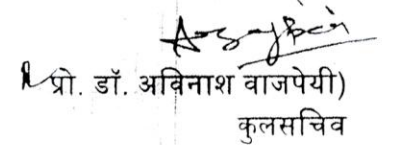 प्रो. डॉ. अविनाश वाजपेयी)
कुलसचिव